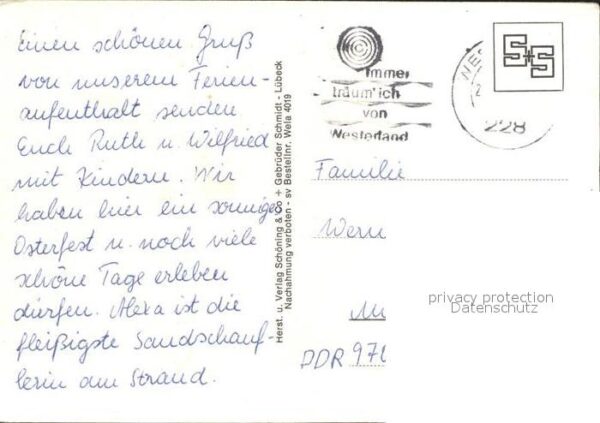 Einen schönen Gruß
von unserem Ferien-
aufenthalt senden
Euch Ruth u. Wilfried
mit Kindern. Wir
haben hier ein sonniges
Osterfest u. noch viele
schöne Tage erleben
dürfen. Alexa ist die
fleißigste Sandschauf
lerin am Strand.
Herst. u. Verlag Schöning & Co + Gebrüder Schmidt - Lübeck
Nachahmung verboten - sv Bestellnr. Wela 4019
Immer
träum' ich
von
Westerland
WES
228
S+S
Familie
Wern
DDR 976
privacy protection
Datenschutz